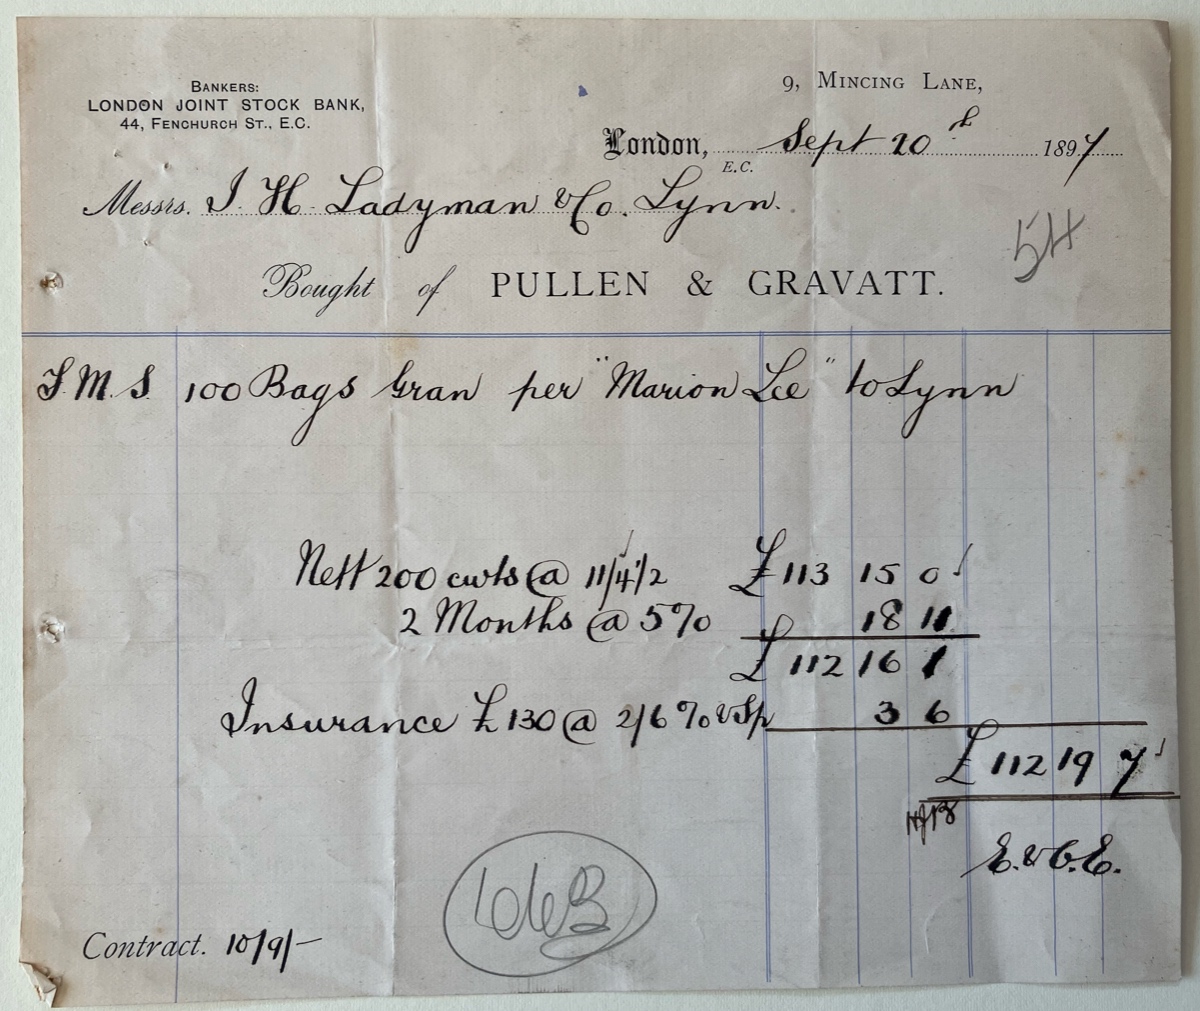 BANKERS:
LONDON JOINT STOCK BANK,
44, FENCHURCH ST., E.C.
9, MINCING LANE,
London, E.C. Sept 20th 1897
Messrs. J. H. Ladyman & Co. Lynn.
54
Bought of PULLEN & GRAVATT.
100 Bags Gran per "Marion Lee" to Lynn
Nett 200 cwts @ 11/4½ £113 15 0
2 Months @ 5% 18 11
£112 16 1
Insurance £130 @ 2/6 % & Sp 3 6
£112 19 7
E. & O. E.
Contract. 10/9/–